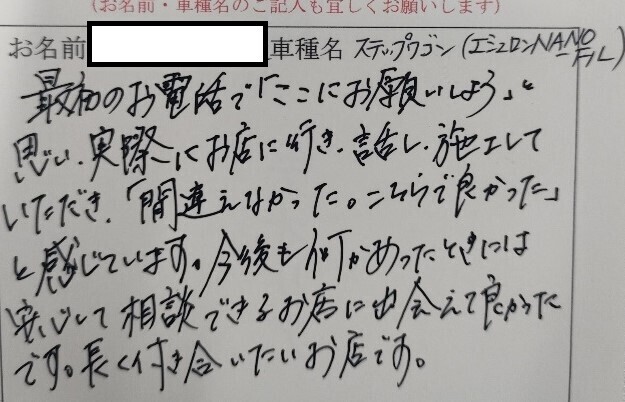 (お名前・車種名のご記入も宜しくお願いします)
お名前 車種名 ステップワゴン(エシュロンNANO-FIL)
最初のお電話で「ここにお願いしよう」と
思い、実際にお店に行き、話し、施工して
いただき、「間違えなかった。こちらで良かった」
と感じています。今後も何かあったときには
安心して相談できるお店に出会えて良かった
です。長く付き合いたいお店です。